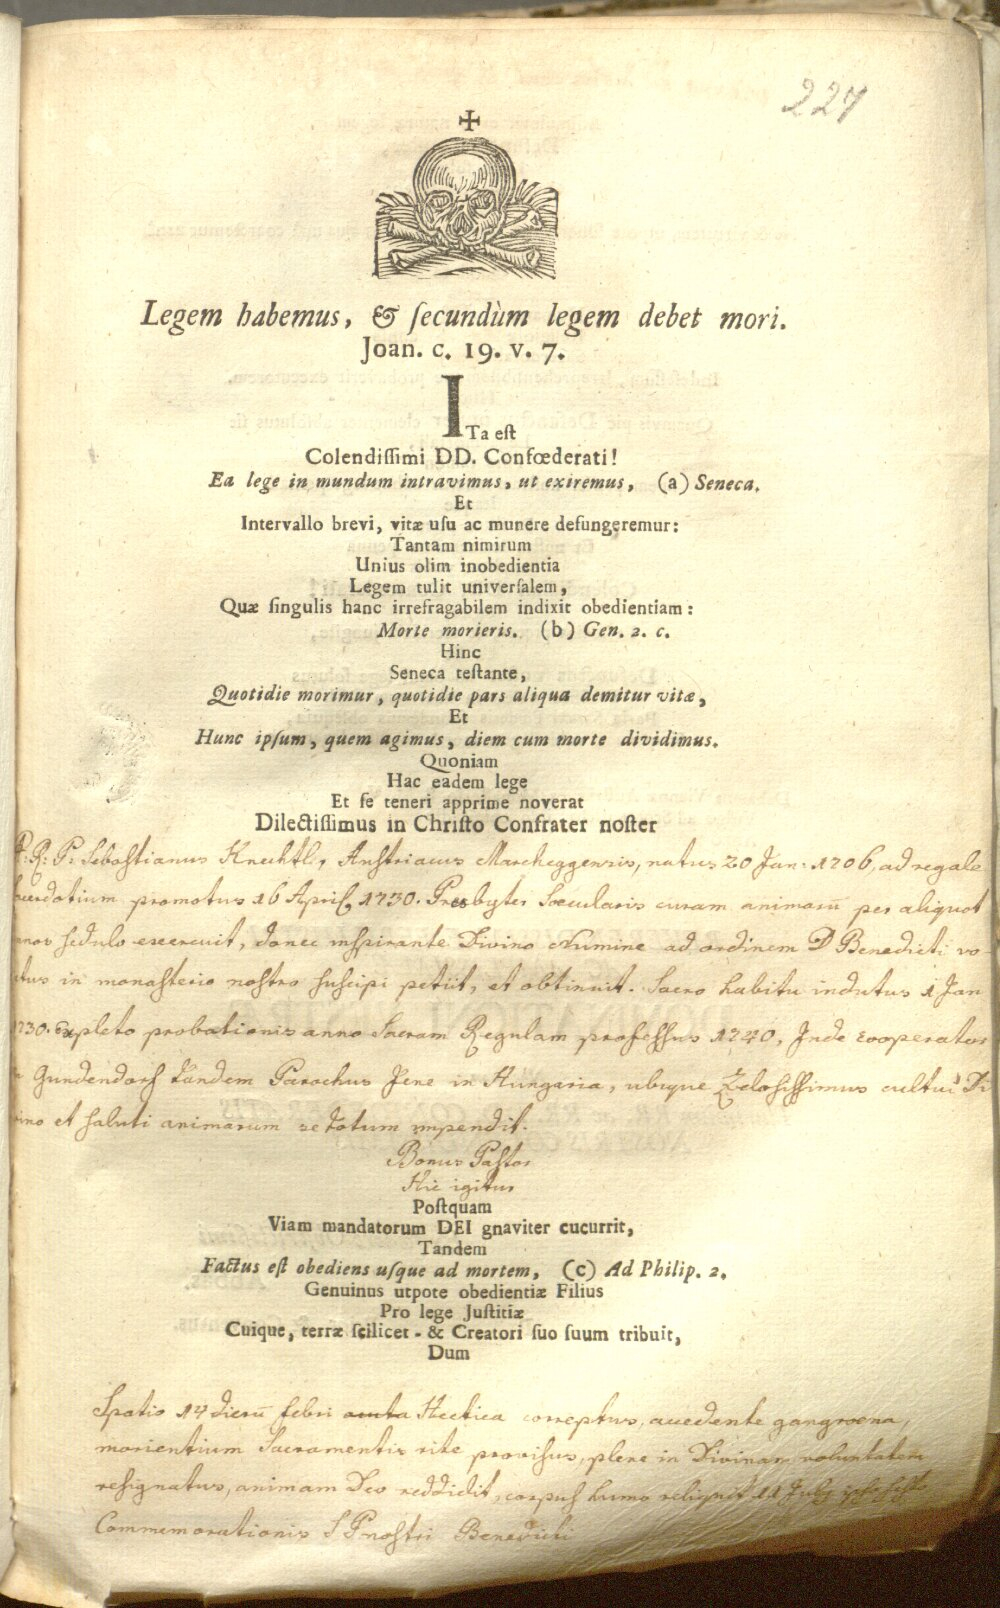 227
Legem habemus, & ſecundùm legem debet mori.
Joan. c. 19. v. 7.
ITa eſt
Colendiſſimi DD. Confœderati!
Ea lege in mundum intravimus, ut exiremus, (a) Seneca.
Et
Intervallo brevi, vitæ uſu ac munere defungeremur:
Tantam nimirum
Unius olim inobedientia
Legem tulit univerſalem,
Quæ ſingulis hanc irrefragabilem indixit obedientiam:
Morte morieris. (b) Gen. 2. c.
Hinc
Seneca teſtante,
Quotidie morimur, quotidie pars aliqua demitur vitæ,
Et
Hunc ipſum, quem agimus, diem cum morte dividimus.
Quoniam
Hac eadem lege
Et ſe teneri apprime noverat
Dilectiſſimus in Chriſto Confrater noſter
P: R: P: Sebastianus Knechtl, Austriacus Marcheggensis, natus 20 Jan: 1706, ad regale
Sacerdotium promotus 16 April 1730. Presbyter Sæcularis curam animarū per aliquot
annos sedulo exercuit, donec inspirante Divino Numine ad ordinem D Benedicti vo-
catus in monasterio nostro suscipi petiit, et obtinuit. Sacro habitu indutus 1 Jan
1730. Expleto probationis anno Sacram Regulam professus 1740, Inde cooperator
Gundendorf tandem Parochus Jene in Hungaria, ubique Zelosissimus cultui Di
vino et saluti animarum se totum impendit.
Bonus Pastor
Hic igitur
Poſtquam
Viam mandatorum DEI gnaviter cucurrit,
Tandem
Factus eſt obediens uſque ad mortem, (c) Ad Philip. 2.
Genuinus utpote obedientiæ Filius
Pro lege Juſtitiæ
Cuique, terræ ſcilicet - & Creatori ſuo ſuum tribuit,
Dum
Spatio 14 dierū febri acuta Hectica correptus, accedente gangroena,
morientium Sacramentis rite provisus, plene in Divinam voluntatem
resignatus, animam Deo reddidit, corpus humo reliquit 11 July ipso festo
Commemorationis S P nostri Benedicti